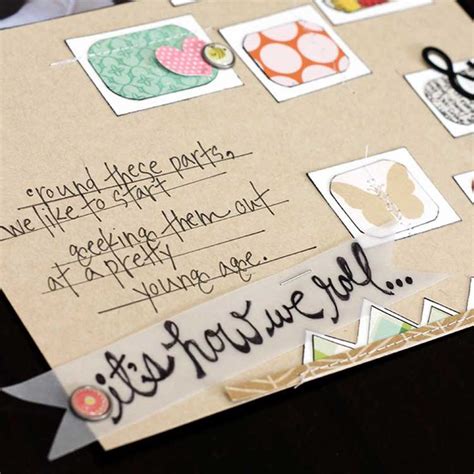 'round these parts,
we like to start
geeking them out
at a pretty
young age.
it's how we roll...